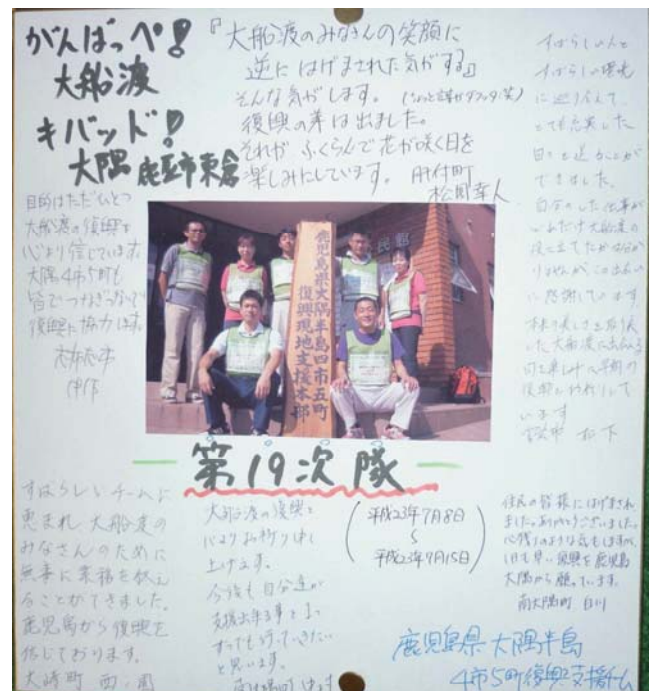 がんばっぺ!
大船渡
キバッド!
大隅 鹿屋市 東倉
『大船渡のみなさんの笑顔に
逆にはげまされた気がする』
そんな気がします。
復興の芽は出ました。
それが ふくらんで 花が咲く日を
楽しみにしています。
肝付町
松岡幸人
すばらしい人と
すばらしい環境
に巡り会えて、
とても充実した
日々を送ることが
できました。
自分のした仕事が
どれだけ大船渡の
役に立てたか分か
りませんが、この出会い
に感謝しています
した大船渡に出会える
日を楽しみに早期の
復興をお祈りして
います
松下
目的はただひとつ
大船渡の復興を
心より信じています。
大隅4市5町も
皆でつながって
復興に協力します。
志布志市
鹿児島県大隅半島四市五町
復興現地支援本部
民館
第19次隊
すばらしいチームに
恵まれ 大船渡の
みなさんのために
無事に業務を終え
ることができました。
鹿児島から復興を
信じております。
大崎町
大船渡の復興を
心よりお祈り申し
上げます。
今後も自分達が
支援出来る事を1つ
ずつでも行っていきたい
と思います。
(平成23年7月8日
〜
平成23年7月15日)
住民の皆様にはげまされ
ました。ありがとうございました。
心残りのような気もしますが、
1日も早い復興を鹿児島
大隅から願っています。
南大隅町 白川
鹿児島県大隅半島
4市5町復興支援チーム